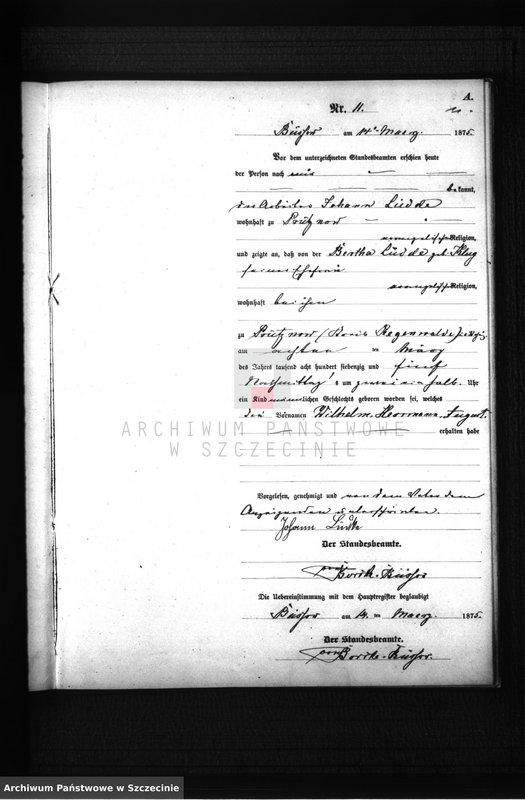 A.
Nr. 11.
am 14t März 1875.
Vor dem unterzeichneten Standesbeamten erschien heute
der Person nach
bekannt,
der Arbeiter Johann Lüdde
wohnhaft zu Prütznow
evangelischer Religion,
und zeigte an, daß von der Bertha Lüdde geb. Klug
seiner Ehefrau
evangelischer Religion,
wohnhaft bei ihm
zu Prütznow / Kreis Regenwalde
am achten ten März
des Jahres tausend acht hundert siebenzig und fünf
Nachmittags um zwei ein halb Uhr
ein Kind männlichen Geschlechts geboren worden sei, welches
die Vornamen Wilhelm, Herrmann, August
erhalten habe
ARCHIWUM PAŃSTWOWE
W SZCZECINIE
Vorgelesen, genehmigt und von dem Vater dem
Anzeigenden unterschrieben.
Johann Lüdke
Der Standesbeamte.
Die Uebereinstimmung mit dem Hauptregister beglaubigt
am 14. ten März 1875.
Der Standesbeamte.
Archiwum Państwowe w Szczecinie